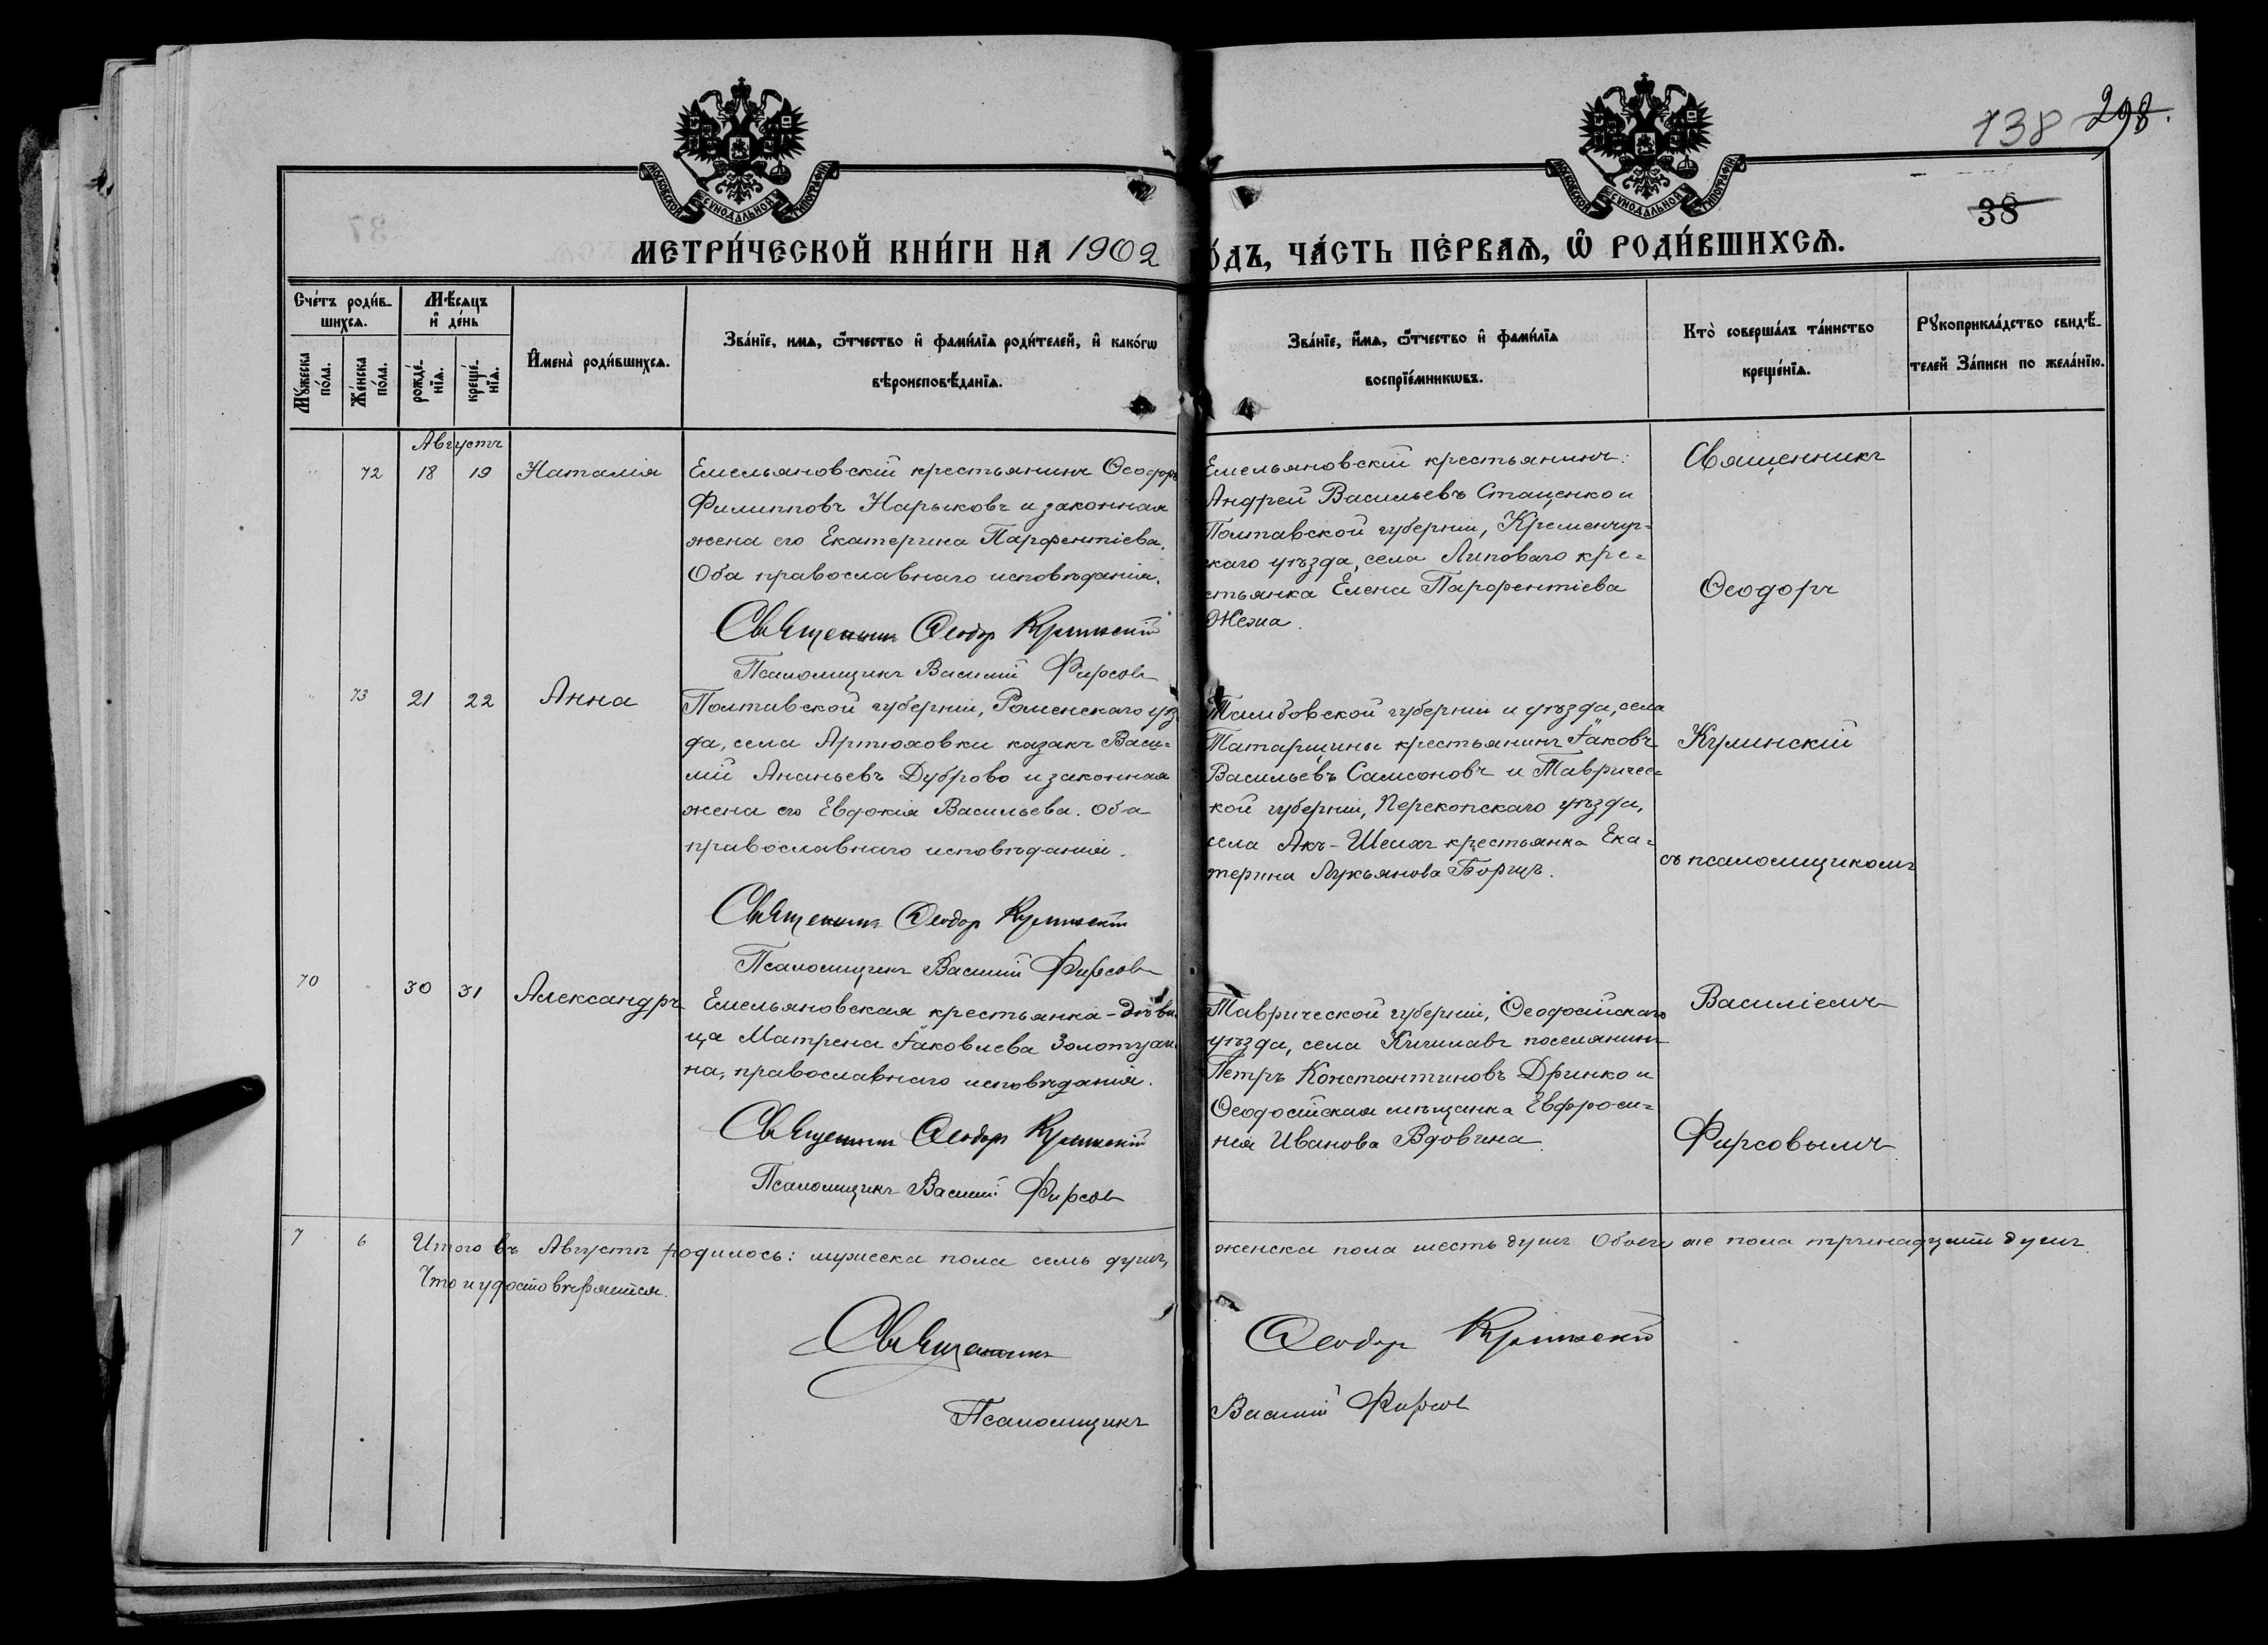 138 298.
38
МОСКОВСКОЙ СУНОДАЛЬНОЙ ТИПОГРАФІИ
МОСКОВСКОЙ СУНОДАЛЬНОЙ ТИПОГРАФІИ
МЕТРИ́ЧЕСКОЙ КНИ́ГИ НА 1902
О́ДЪ, ЧА́СТЬ ПЕ́РВАѦ, Ѡ҆ РОДИ́ВШИХСѦ.
Сче́тъ роди́в-
шихсѧ.
Мꙋ́жеска
по́ла.
Же́нска
по́ла.
Мѣ́сѧцъ
и҆ де́нь
рожде́-
нїѧ.
креще́-
нїѧ.
И҆мена̀ роди́вшихсѧ.
Зва́нїе, имѧ, ѻ҆́тчество и҆ фами́лїѧ роди́телей, и҆ како́гѡ
вѣроисповѣ́данїѧ.
Зва́нїе, и҆́мѧ, ѻ҆́тчество и҆ фами́лїѧ
воспрїе́мникѡвъ.
Кто̀ соверша́лъ та́инство
креще́нїѧ.
Рꙋкоприкла́дство свидѣ́-
телей За́писи по жела́нїю.
Августъ
" 72 18 19 Наталія
Емельяновскій крестьянинъ Ѳеодоръ
Филипповъ Нарыковъ и законная
жена его Екатерина Парфентіева.
Оба православнаго исповѣданія.
Священникъ Ѳеодоръ Кулинскій
Псаломщикъ Василій Фирсовъ
Емельяновскій крестьянинъ:
Андрей Васильевъ Стаценко и
Полтавской губерніи, Кременчуг-
скаго уѣзда, села Липоваго кре-
стьянка Елена Парфентіева
Жежа.
Священникъ
Ѳеодоръ
" 73 21 22 Анна
Полтавской губерніи, Роменскаго уѣз
да, села Артюховки казакъ Васи-
лій Ананьевъ Дуброво и законная
жена его Евдокія Васильева. Оба
православнаго исповѣданія.
Священникъ Ѳеодоръ Кулинскій
Псаломщикъ Василій Фирсовъ
Тамбовской губерніи и уѣзда, села
Татарщины крестьянинъ Іаковъ
Васильевъ Самсоновъ и Тавричес-
кой губерніи, Перекопскаго уѣзда,
села Акъ-Шеихъ крестьянка Ека-
терина Лукьянова Борщъ.
Кулинскій
съ псаломщикомъ
70 30 31 Александръ
Емельяновская крестьянка-дѣви
ца Матрена Іаковлева Золотухи
на, православнаго исповѣданія.
Священникъ Ѳеодоръ Кулинскій
Псаломщикъ Василій Фирсовъ
Таврической губерніи, Ѳеодосійскаго
уѣзда, села Кишлавъ поселянинъ
Петръ Константиновъ Дринко и
Ѳеодосійская мѣщанка Евфроси-
нія Иванова Вдовина.
Василіемъ
Фирсовымъ
7 6 Итого въ Августѣ родилось: мужеска пола семь душъ,
женска пола шесть душъ Обоего же пола тринадцать душъ.
Что и удостовѣряется.
Священникъ
Ѳеодоръ Кулинскій
Псаломщикъ
Василій Фирсовъ